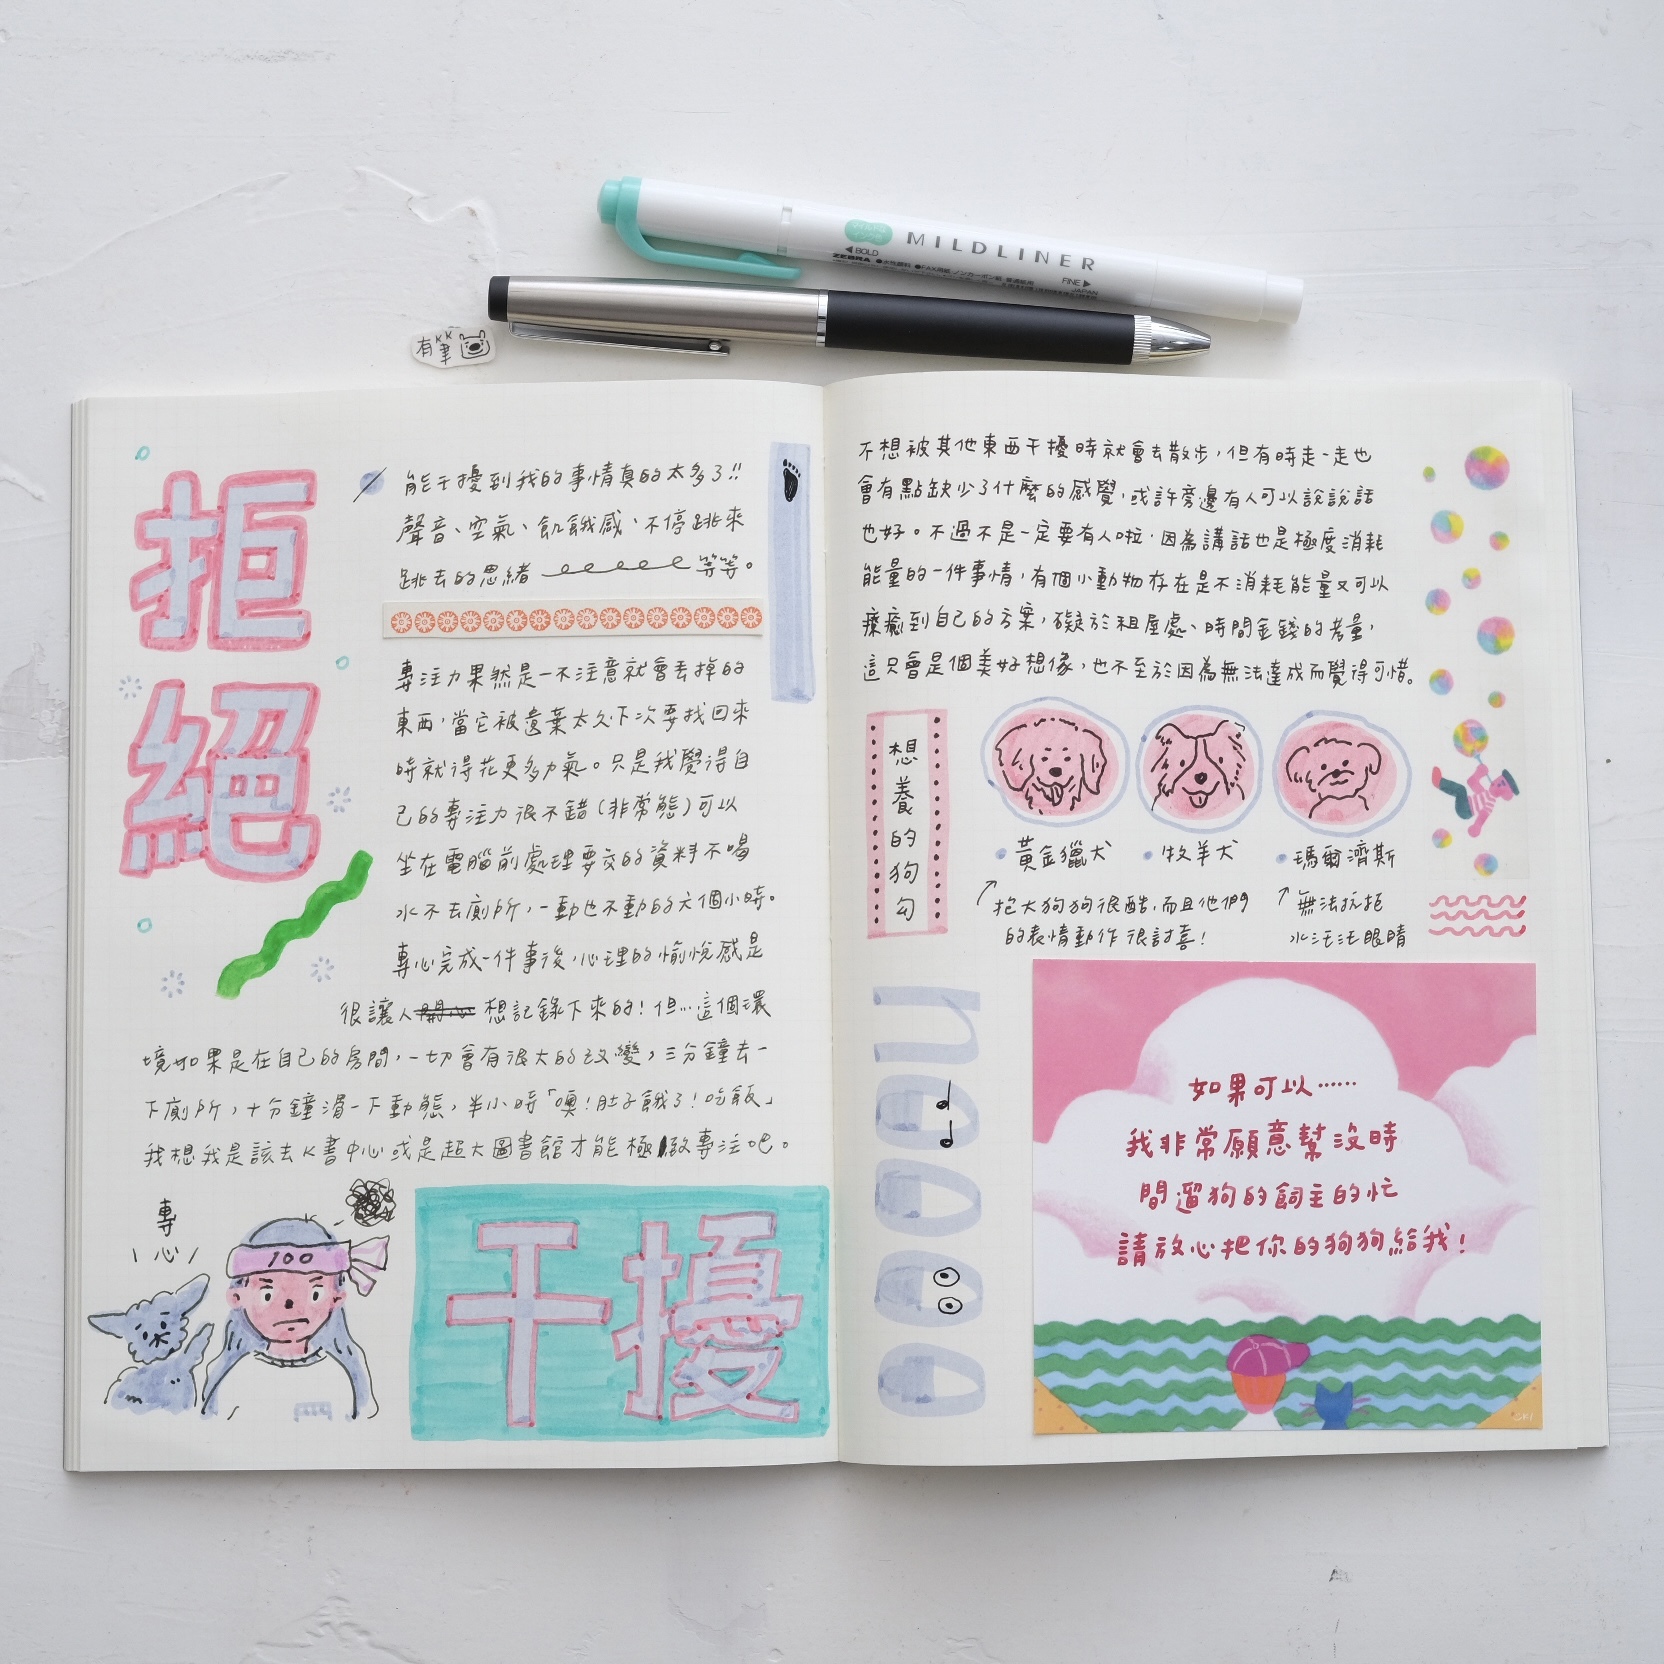 MILDLINER
◀BOLD
ZEBRA
FINE▶
JAPAN
有筆
KK
拒絕
能干擾到我的事情真的太多了!!
聲音、空氣、飢餓感、不停跳來
跳去的思緒 等等。
專注力果然是一不注意就會丟掉的
東西,當它被遺棄太久下次要找回來
時就得花更多力氣。只是我覺得自
己的專注力很不錯(非常態)可以
坐在電腦前處理要交的資料不喝
水不去廁所,一動也不動的六個小時。
專心完成一件事後,心理的愉悅感是
很讓人 想記錄下來的!但…這個環
境如果是在自己的房間,一切會有很大的改變,三分鐘去一
下廁所,十分鐘滑一下動態,半小時「噢!肚子餓了!吃飯」
我想我是該去K書中心或是超大圖書館才能極致專注吧。
專
心
100
干擾
不想被其他東西干擾時就會去散步,但有時走一走也
會有點缺少了什麼的感覺,或許旁邊有人可以說說話
也好。不過不是一定要有人啦,因為講話也是極度消耗
能量的一件事情,有個小動物存在是不消耗能量又可以
療癒到自己的方案,礙於租屋處、時間金錢的考量,
這只會是個美好想像,也不至於因為無法達成而覺得可惜。
想養的狗勾
黃金獵犬
牧羊犬
瑪爾濟斯
抱大狗狗很酷,而且他們
的表情動作很討喜!
無法抗拒
水汪汪眼睛
noooo
如果可以……
我非常願意幫沒時
間遛狗的飼主的忙
請放心把你的狗狗給我!